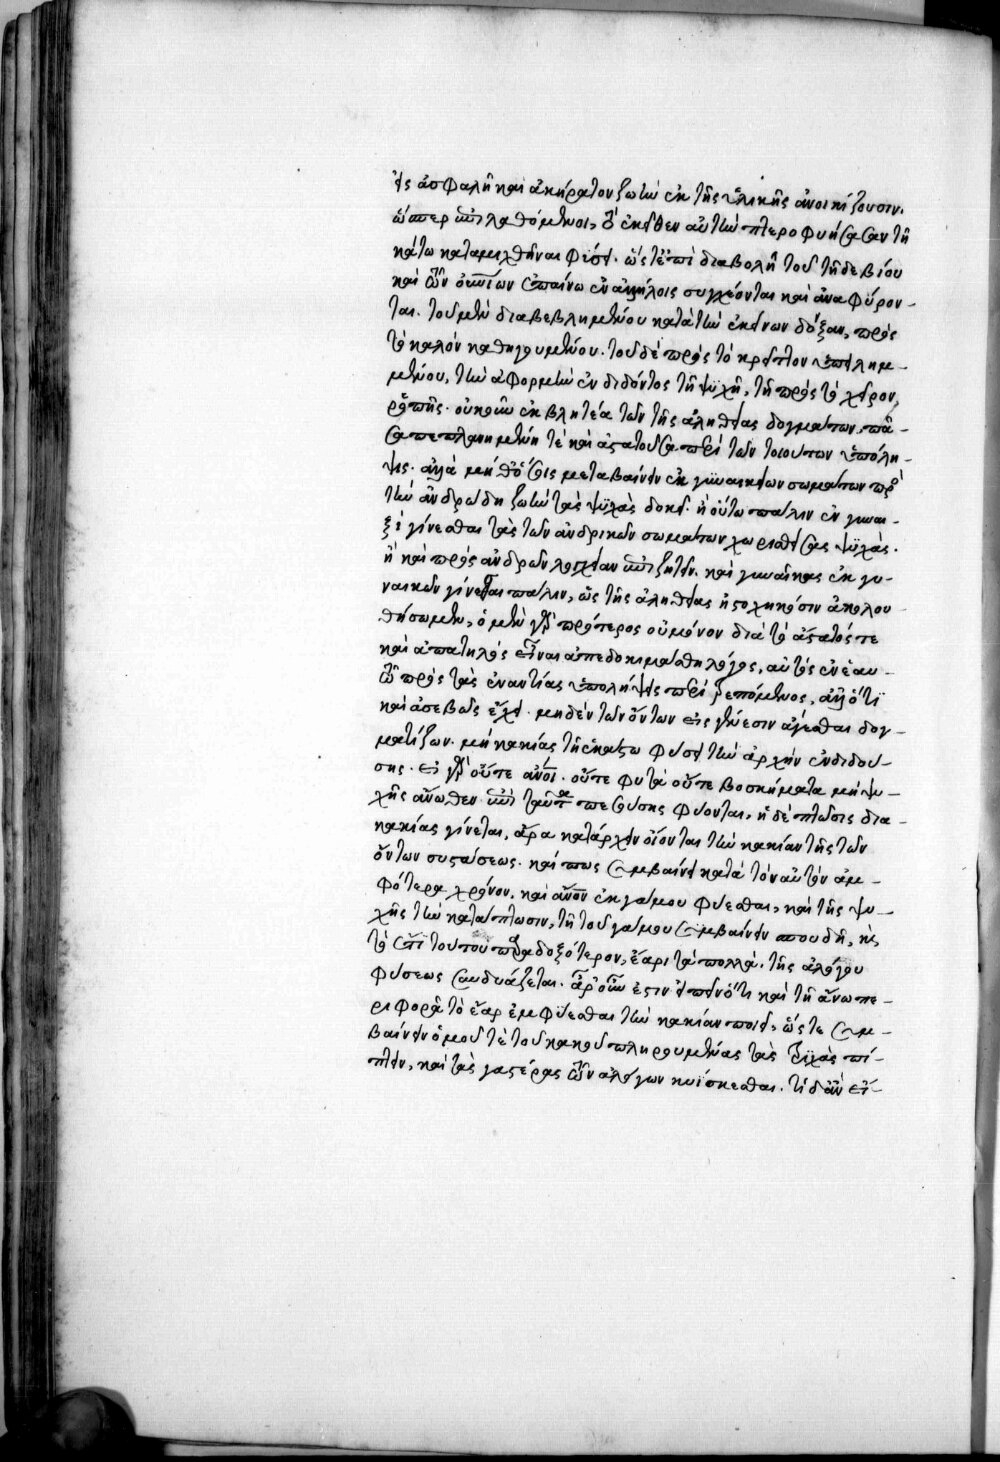 εἰς ἀσφαλῆ καὶ ἀκήρατον ζωὴν ἐκ τῆς ὑλικῆς ἀνοικίζουσιν.
ὥσπερ ἐπιλαθόμενοι, ὃ ἐκεῖθεν αὐτὴν πτεροφυήσασαν τῇ
κάτω καταμιχθῆναι φύσει. ὥστε ἐπὶ διαβολῇ τοῦ τῇδε βίου
καὶ τῶν οὐνίων ἐπαίνω ἐν ἀλλήλοις συγχέονται καὶ ἀναφύρον-
ται. τοῦ μὲν διαβεβλημένου κατὰ τὴν ἐκείνων δόξαν, πρὸς
τὸ καλὸν καθηγουμένου. τοῦ δὲ πρὸς τὸ κρεῖττον ὑπειλημ-
μένου, τὴν ἀφορμὴν ἐνδιδόντος τῇ ψυχῇ, τῆς πρὸς τὸ χεῖρον
ῥοπῆς. οὐκοῦν ἐκβλητέα τῶν τῆς ἀληθείας δογμάτων, πᾶ-
σα πεπλανημένη τὲ καὶ ἄστατος περὶ τῶν τοιούτων ὑπόλη-
ψις. ἀλλὰ μὴ θ' ὅσοις μεταβαίνειν ἐκ γυναικείων σωμάτων πρὸς
τὴν ἀνδρώδη ζωὴν τὰς ψυχὰς δοκεῖ. ἢ οὕτω πάλιν ἐν γυναι-
ξὶ γίνεσθαι τὰς τῶν ἀνδρικῶν σωμάτων χωρισθείσας ψυχάς.
ἢ καὶ πρὸς ἀνδρῶν καὶ γυναῖκας ἐκ γυ-
ναικῶν γίνεσθαι πάλιν, ὡς τῆς ἀληθείας ἠστοχηκόσιν ἀκολου-
θήσωμεν, ὁ μὲν γὰρ πρότερος οὐ μόνον διὰ τὸ ἄστατός τε
καὶ ἀπατηλὸς εἶναι ἀπεδοκιμάσθη λόγος, αὐτὸς ἐν ἑαυ-
τῷ πρὸς τὰς ἐναντίας ὑπολήψεις περιτρεπόμενος, ἀλλ' ὅτι
καὶ ἀσεβῶς ἔχει. μηδὲν τῶν ὄντων εἰς γένεσιν ἄγεσθαι δογ-
ματίζων. μὴ κακίας τῇ ἑκάστω φύσει τὴν ἀρχὴν ἐνδιδού-
σης. εἰ γὰρ οὔτε ἄνοι. οὔτε φυτὰ οὔτε βοσκήματα μὴ ψυ-
χῆς ἄνωθεν ἐπὶ ταῦτα πεσούσης φύονται, ἡ δὲ πτῶσις διὰ
κακίας γίνεται, ἄρα κατάρχειν οἴονται τὴν κακίαν τῆς τῶν
ὄντων συστάσεως. καὶ πως συμβαίνει κατὰ τὸν αὐτὸν ἀμ-
φότερα χρόνον. καὶ ἄνον ἐκ γάμου φύεσθαι, καὶ τῆς ψυ-
χῆς τὴν κατάπτωσιν, τῇ τοῦ γάμου συμβαίνειν σπουδῇ, κὶ
τὸ ἔτι τούτου παραδοξότερον, ἔαρι τὰ πολλὰ. τῆς ἀλόγου
φύσεως συνδυάζεται. ἆρ' οὖν ἐστιν εἰπεῖν ὅτι καὶ τῇ ἄνω πε-
ριφορᾷ τὸ ἔαρ ἐμφύεσθαι τὴν κακίαν ποιεῖ, ὥστε συμ-
βαίνειν ὁμοῦ τὲ τοῦ κακοῦ πληρουμένας τὰς ψυχὰς πί-
πτειν, καὶ τὰς γαστέρας τῶν ἀλόγων κυΐσκεσθαι. τί δ' ἂν εἴ-